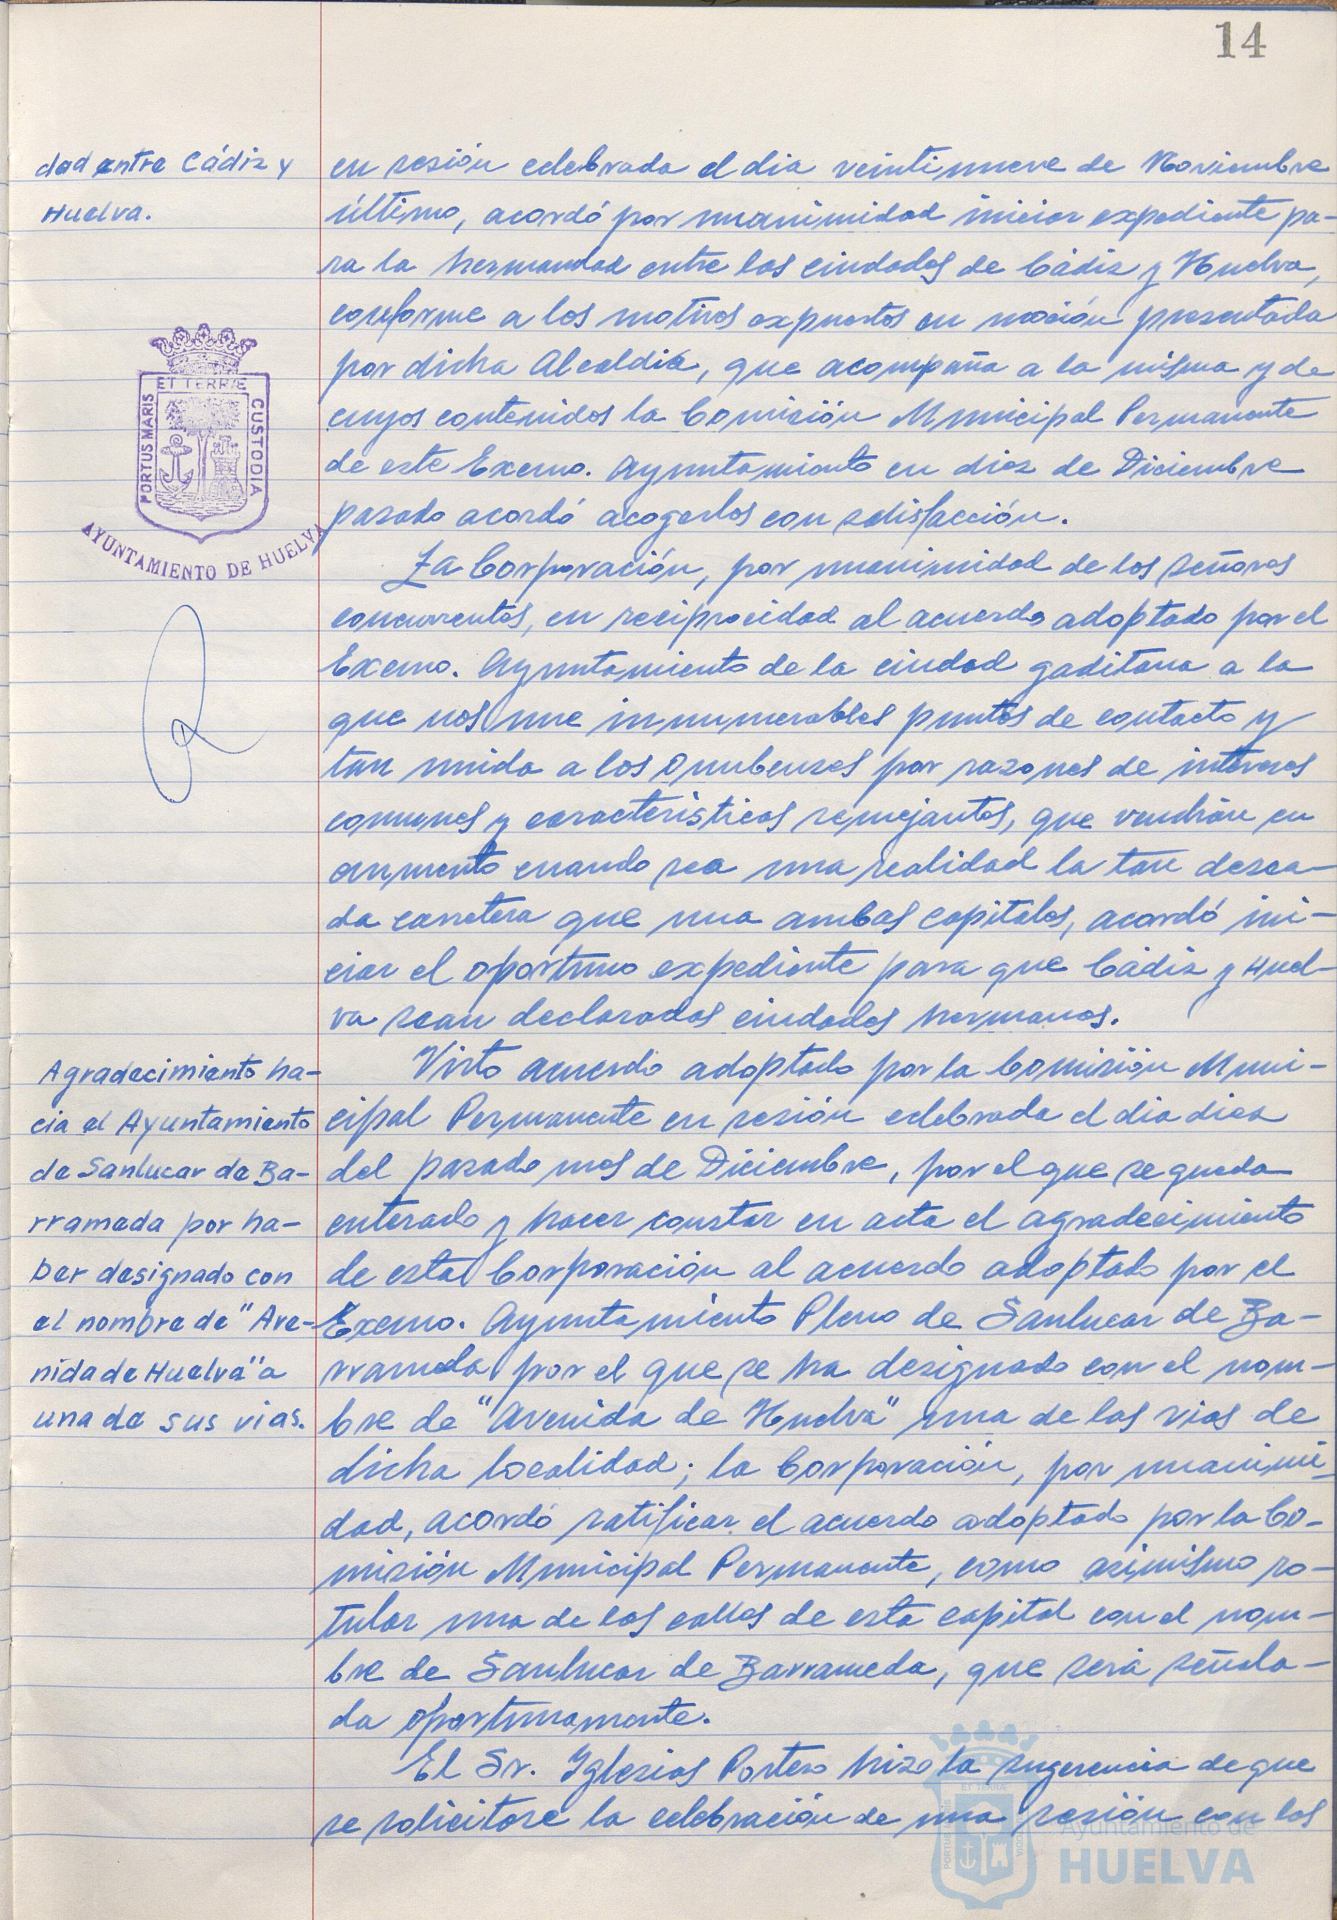 14
dad entre Cádiz y
Huelva.
en sesión celebrada el dia veintinueve de Noviembre
último, acordó por unanimidad iniciar expediente pa-
ra la hermandad entre las ciudades de Cádiz y Huelva,
conforme a los motivos expuestos en moción presentada
por dicha Alcaldia, que acompaña a la misma y de
cuyos contenidos la Comisión Municipal Permanente
de este Excmo. Ayuntamiento en diez de Diciembre
pasado acordó acogerlos con satisfacción.
ET TERRÆ
PORTUS MARIS
CUSTODIA
AYUNTAMIENTO DE HUELVA
La Corporación, por unanimidad de los señores
concurrentes, en reciprocidad al acuerdo adoptado por el
Excmo. Ayuntamiento de la ciudad gaditana a la
que nos une innumerables puntos de contacto y
tan unida a los Onubenses por razones de intereses
comunes y caracteristicas semejantes, que vendrán en
aumento cuando sea una realidad la tan desea-
da carretera que una ambas capitales, acordó ini-
ciar el oportuno expediente para que Cádiz y Huel-
va sean declaradas ciudades hermanas.
Agradecimiento ha-
cia el Ayuntamiento
de Sanlucar de Ba-
rrameda por ha-
ber designado con
el nombre de "Ave-
nida de Huelva" a
una de sus vias.
Visto acuerdo adoptado por la Comisión Muni-
cipal Permanente en sesión celebrada el dia diez
del pasado mes de Diciembre, por el que se queda
enterado y hacer constar en acta el agradecimiento
de esta Corporación al acuerdo adoptado por el
Excmo. Ayuntamiento Pleno de Sanlucar de Ba-
rrameda por el que se ha designado con el nom-
bre de "Avenida de Huelva" una de las vias de
dicha localidad; la Corporación, por unanimi-
dad, acordó ratificar el acuerdo adoptado por la Co-
misión Municipal Permanente, como asimismo ro-
tular una de las calles de esta capital con el nom-
bre de Sanlucar de Barrameda, que será señala-
da oportunamente.
El Sr. Iglesias Portero hizo la sugerencia de que
se solicitase la celebración de una sesión con los
ET TERRÆ
Ayuntamiento de
HUELVA